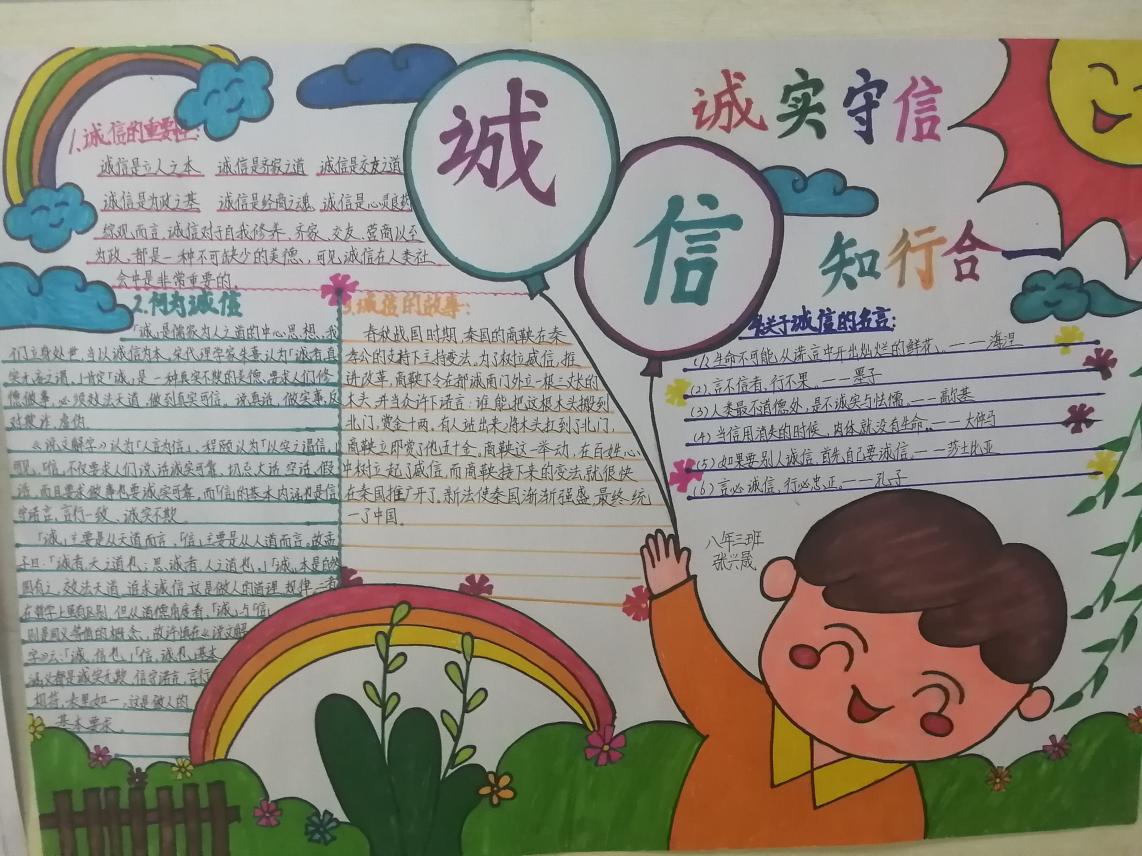 诚
信
诚实守信
知行合一
1.诚信的重要性:
诚信是立人之本 诚信是齐家之道 诚信是交友之道
诚信是为政之基 诚信是经商之魂 诚信是心灵良药
综观而言,诚信对于自我修养、齐家、交友、营商以至
为政,都是一种不可缺少的美德,可见,诚信在人类社
会中是非常重要的。
2.何为诚信
「诚」是儒家为人之道的中心思想,我
们立身处世,当以诚信为本。宋代理学家朱熹认为「诚者,真
实无妄之谓。」肯定「诚」是一种真实不欺的美德。要求人们修
德做事,必须效法天道,做到真实可信。说真话,做实事,反
对欺诈、虚伪。
《说文解字》认为「人言为信」,程颐认为「以实之谓信」
可见,「信」不仅要求人们说话诚实可靠,切忌大话、空话、假
话,而且要求做事也要诚实可靠。而「信」的基本内涵也是信
守诺言、言行一致、诚实不欺。
「诚」主要是从天道而言,「信」主要是从人道而言。故孟
子曰:「诚者,天之道也;思诚者,人之道也。」「诚」本是自然
固有之,效法天道、追求诚信,这是做人的道理、规律。二者
在哲学上虽有区别,但从道德角度看,「诚」与「信」
则是同义等值的概念,故许慎在《说文解
字》云:「诚,信也」,「信,诚也」。基本
涵义都是诚实无欺,信守诺言,言行
相符,表里如一,这是做人的
基本要求。
3.诚信的故事:
春秋战国时期,秦国的商鞅在秦
孝公的支持下主持变法。为了树立威信,推
进改革,商鞅下令在都城南门外立一根三丈长的
木头,并当众许下诺言:谁能把这根木头搬到
北门,赏金十两。有人站出来,将木头扛到了北门,
商鞅立即赏了他五十金。商鞅这一举动,在百姓心
中树立起了威信,而商鞅接下来的变法就很快
在秦国推广开了。新法使秦国渐渐强盛,最终统
一了中国。
关于诚信的名言:
(1)生命不可能从谎言中开出灿烂的鲜花。———海涅
(2)言不信者,行不果。——墨子
(3)人类最不道德处,是不诚实与怯懦。——高尔基
(4)当信用消失的时候,肉体就没有生命。——大仲马
(5)如果要别人诚信,首先自己要诚信。——莎士比亚
(6)言必诚信,行必忠正。——孔子
八年三班
张兴晟